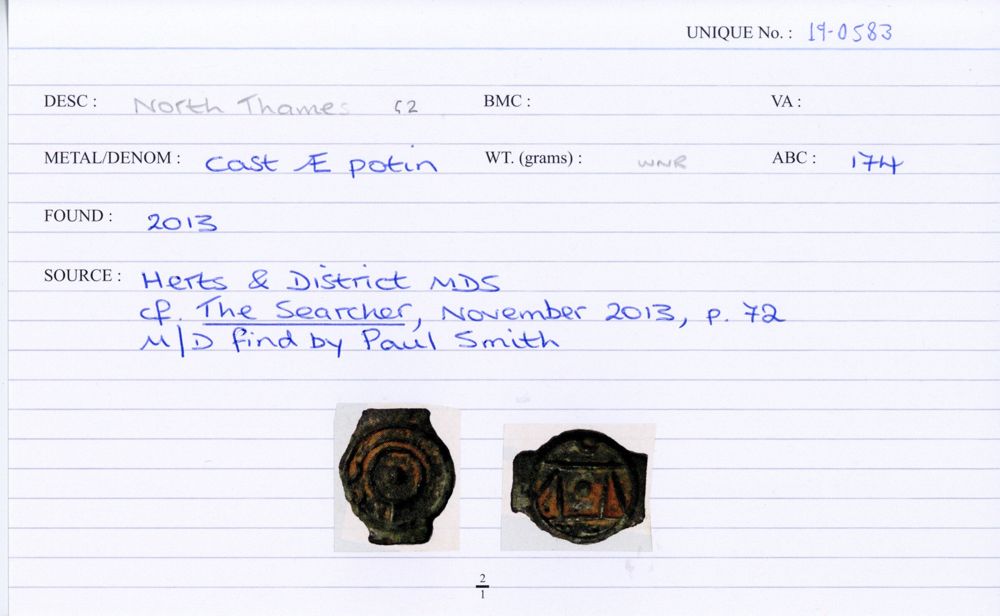 UNIQUE No. : 19-0583
DESC : North Thames BMC : VA :
METAL/DENOM : Cast Æ potin WT. (grams) : WNR ABC : 174
FOUND : 2013
SOURCE : Herts & District MDS
cf. The Searcher, November 2013, p. 72
M/D find by Paul Smith
2
1